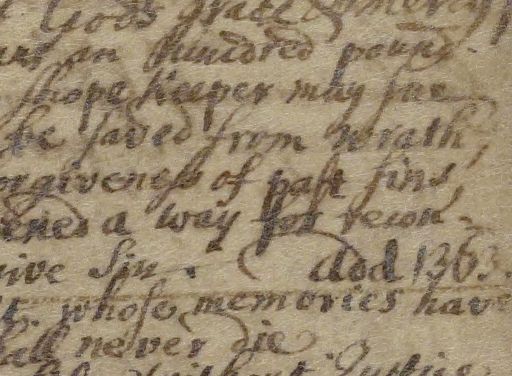 God's grace & mercy
an hundred pound.
shope keeper may
be saved from wrath,
orgiveness of past sins,
ened a way for recon-
ive Sin. dod 1363.
t. whose memories have
all never die
without Justice